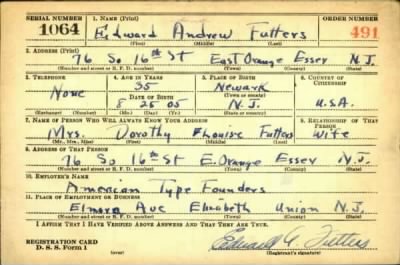 SERIAL NUMBER 1. NAME (Print) ORDER NUMBER
1064 Edward Andrew Futters 491
(First) (Middle) (Last)
2. ADDRESS (Print)
76 So 16th St East Orange Essex N.J.
(Number and street or R. F. D. number) (Town) (County) (State)
3. TELEPHONE 4. AGE IN YEARS 5. PLACE OF BIRTH 6. COUNTRY OF CITIZENSHIP
None 35 Newark
DATE OF BIRTH (Town or county)
8 25 05 N.J. U.S.A.
(Exchange) (Number) (Mo.) (Day) (Yr.) (State or country)
7. NAME OF PERSON WHO WILL ALWAYS KNOW YOUR ADDRESS 8. RELATIONSHIP OF THAT PERSON
Mrs. Dorothy Louise Futters Wife
(Mr., Mrs., Miss) (First) (Middle) (Last)
9. ADDRESS OF THAT PERSON
76 So 16th St E. Orange Essex N.J.
(Number and street or R. F. D. number) (Town) (County) (State)
10. EMPLOYER'S NAME
American Type Founders
11. PLACE OF EMPLOYMENT OR BUSINESS
Elmora Ave Elizabeth Union N.J.
(Number and street or R. F. D. number) (Town) (County) (State)
I AFFIRM THAT I HAVE VERIFIED ABOVE ANSWERS AND THAT THEY ARE TRUE.
REGISTRATION CARD
D. S. S. Form 1 (over) Edward A. Futters
(Registrant's signature)